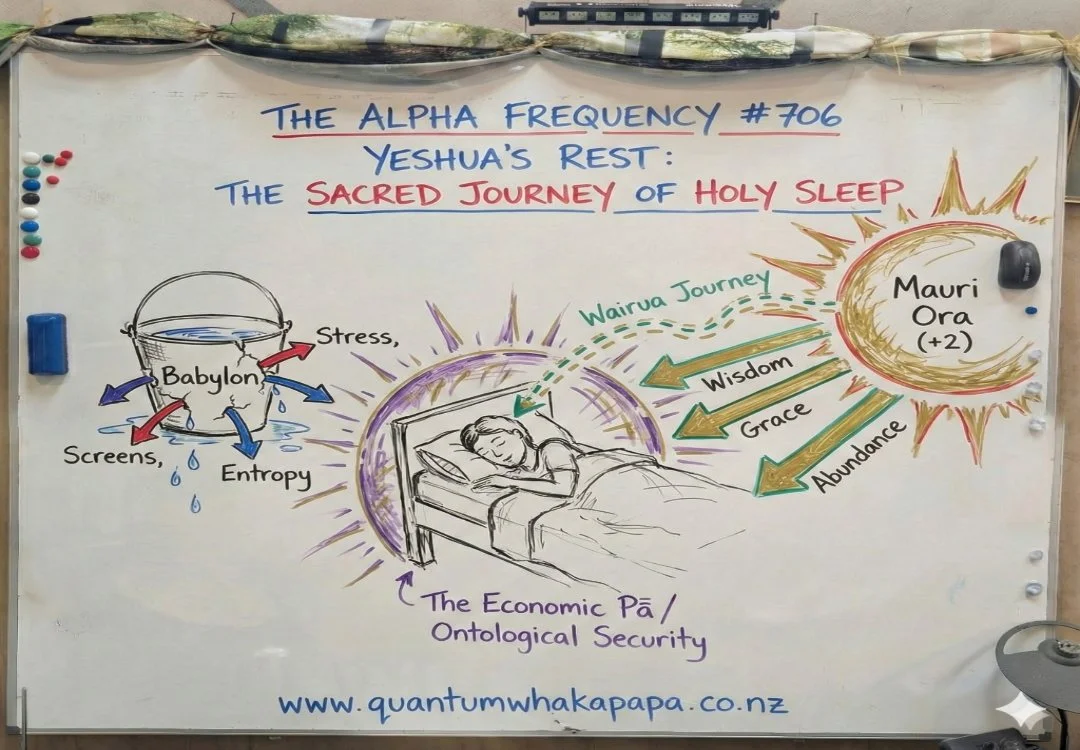 THE ALPHA FREQUENCY #706
YESHUA'S REST:
THE SACRED JOURNEY OF HOLY SLEEP
Mauri
Ora
(+2)
Wairua Journey
Wisdom
Grace
Abundance
Stress,
Babylon
Screens,
Entropy
The Economic Pā/
Ontological Security
www.quantumwhakapapa.co.nz